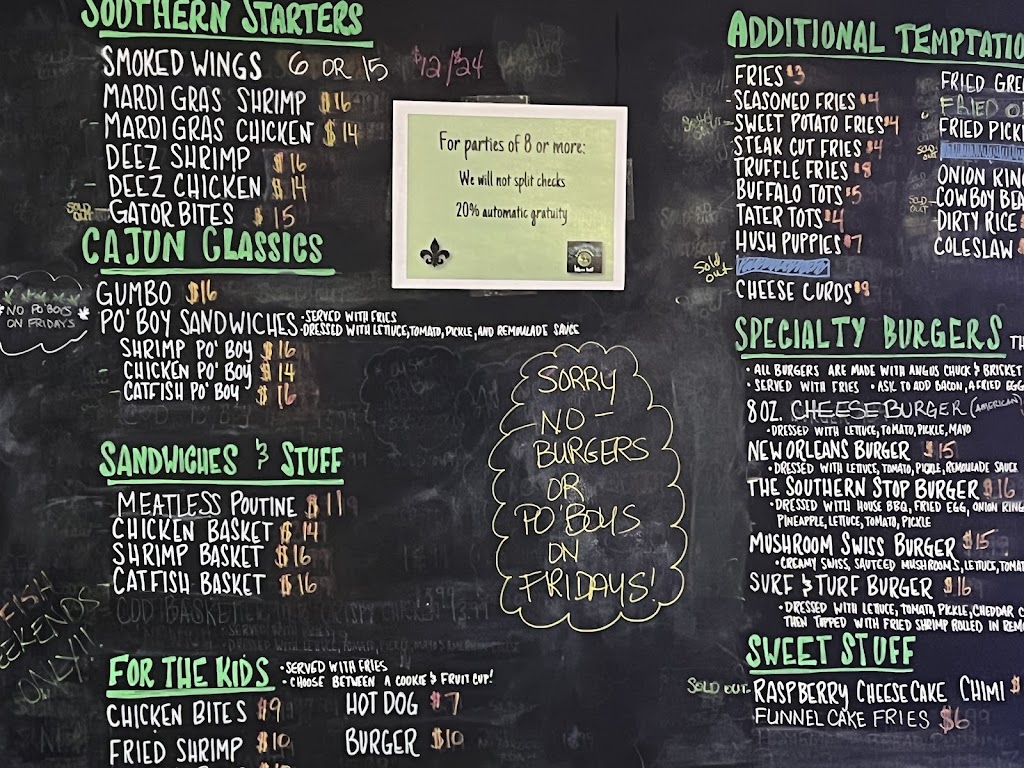 SOUTHERN STARTERS
SMOKED WINGS 6 OR 15 $12/$24
MARDI GRAS SHRIMP $16
MARDI GRAS CHICKEN $14
DEEZ SHRIMP $16
- DEEZ CHICKEN $14
SOLD OUT - GATOR BITES $15
CAJUN CLASSICS
GUMBO $16
NO PO'BOYS ON FRIDAYS
PO' BOY SANDWICHES • SERVED WITH FRIES
• DRESSED WITH LETTUCE, TOMATO, PICKLE, AND REMOULADE SAUCE
SHRIMP PO' BOY $16
- CHICKEN PO' BOY $14
- CATFISH PO' BOY $16
SANDWICHES & STUFF
MEATLESS POUTINE $11
CHICKEN BASKET $14
SHRIMP BASKET $16
- CATFISH BASKET $16
COD BASKET
FISH
WEEKENDS
ONLY!!
FOR THE KIDS • SERVED WITH FRIES
• CHOOSE BETWEEN A COOKIE & FRUIT CUP!
CHICKEN BITES $9
FRIED SHRIMP $10
HOT DOG $7
BURGER $10
For parties of 8 or more:
We will not split checks
20% automatic gratuity
SORRY
NO
BURGERS
OR
PO'BOYS
ON
FRIDAYS!
ADDITIONAL TEMPTATIO
FRIES $3
- SEASONED FRIES $4
- SWEET POTATO FRIES $4
STEAK CUT FRIES $4
TRUFFLE FRIES $8
BUFFALO TOTS $5
TATER TOTS $4
HUSH PUPPIES $7
Sold out
CHEESE CURDS $9
FRIED GRE
FRIED O
FRIED PICK
SOLD OUT
ONION RING
SOLD OUT - COWBOY BEA
DIRTY RICE $
COLESLAW $
SPECIALTY BURGERS TH
• ALL BURGERS ARE MADE WITH ANGUS CHUCK & BRISKET
• SERVED WITH FRIES • ASK TO ADD BACON, A FRIED EGG
8 OZ. CHEESEBURGER (AMERICAN)
• DRESSED WITH LETTUCE, TOMATO, PICKLE, MAYO
NEW ORLEANS BURGER $15
• DRESSED WITH LETTUCE, TOMATO, PICKLE, REMOULADE SAUCE
THE SOUTHERN STOP BURGER $16
• DRESSED WITH HOUSE BBQ, FRIED EGG, ONION RING
PINEAPPLE, LETTUCE, TOMATO, PICKLE
MUSHROOM SWISS BURGER $15
• CREAMY SWISS, SAUTEED MUSHROOMS, LETTUCE, TOMAT
SURF & TURF BURGER $16
• DRESSED WITH LETTUCE, TOMATO, PICKLE, CHEDDAR C
THEN TOPPED WITH FRIED SHRIMP ROLLED IN REMO
SWEET STUFF
SOLD OUT - RASPBERRY CHEESECAKE CHIMI $
FUNNEL CAKE FRIES $6